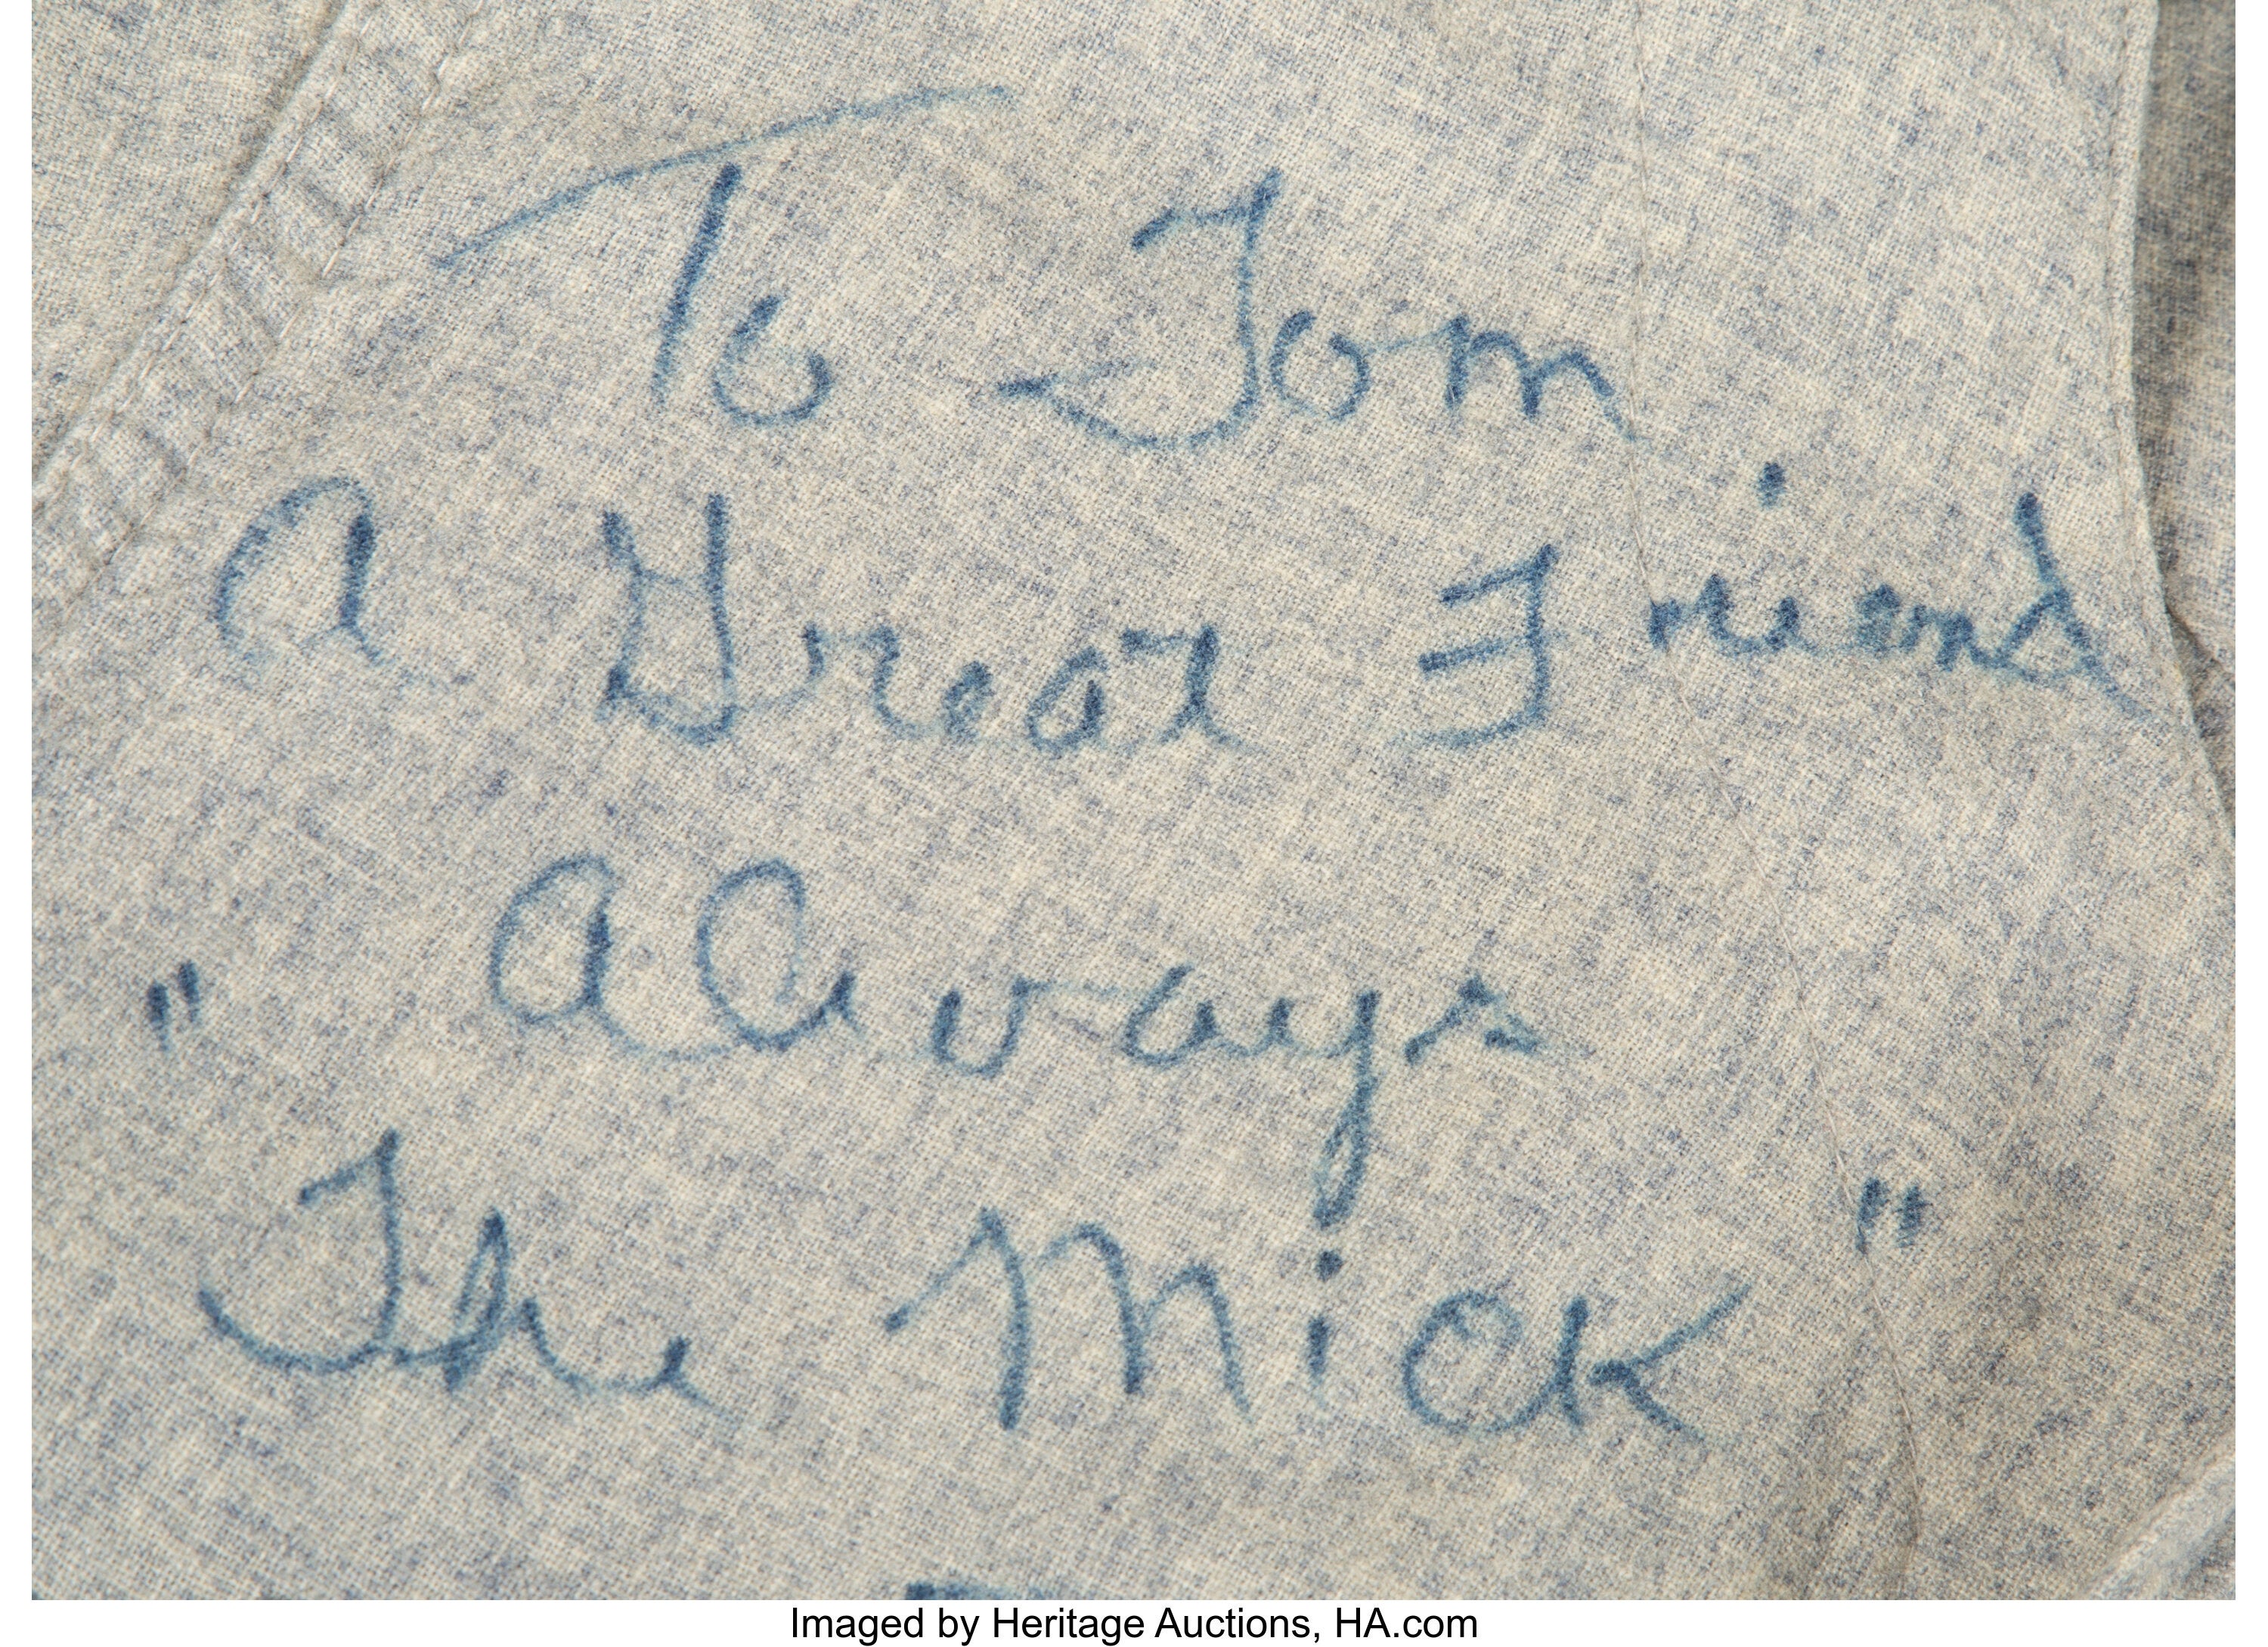 To Tom
A Great Friend
" Always
The Mick "
Imaged by Heritage Auctions, HA.com